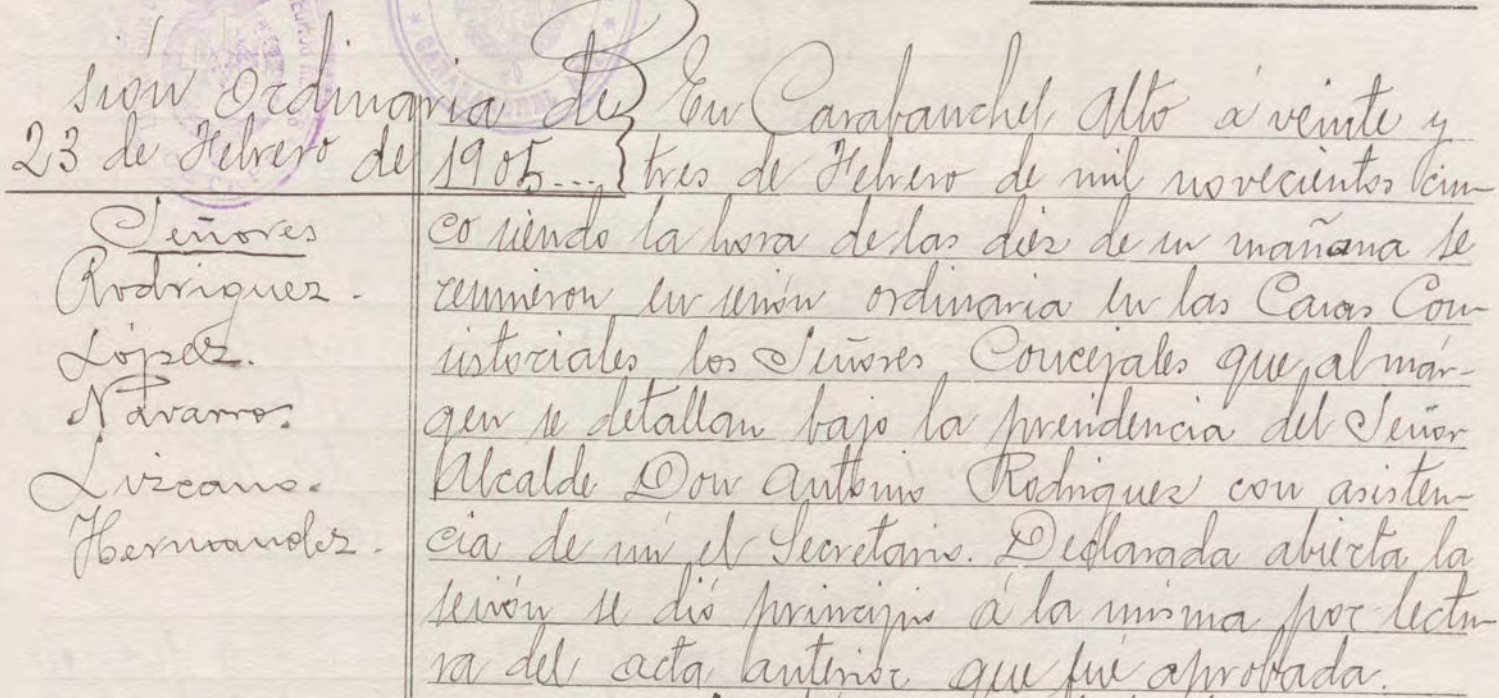 sión Ordinaria de
23 de Febrero de 1905...
Señores
Rodriguez.
López.
Navarro.
Lizcano.
Hernandez.
En Carabanchel Alto á veinte y
tres de Febrero de mil novecientos cin-
co siendo la hora de las diez de su mañana se
reunieron en sesión ordinaria en las Casas Con-
sistoriales los Señores Concejales que al már-
gen se detallan bajo la presidencia del Señor
Alcalde Don Antonio Rodriguez con asisten-
cia de mí el Secretario. Declarada abierta la
sesión se dió principio á la misma por lectu-
ra del acta anterior que fué aprobada.